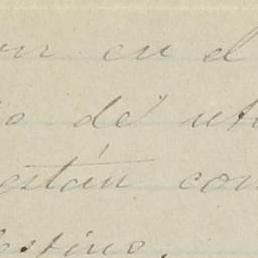 on en el
o del ut
están con
destino.